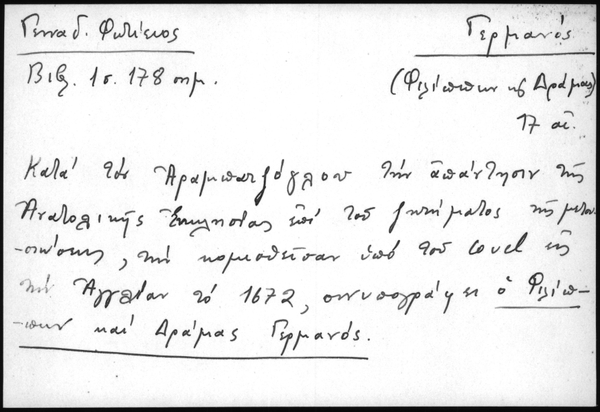 Γενναδ. Φωτίειος
Γερμανός
Βιβλ. 1σ. 178 σημ.
(Φιλίππων κ Δράμας)
17 αἰ.
Κατά τόν Ἀραμπατζόγλου τήν ἀπάντησιν τῆς
Ἀνατολικῆς Ἐκκλησίας ἐπί τοῦ ζητήματος τῆς μετου-
-σιώσεως, τήν κομισθεῖσαν ὑπό τοῦ Covel εἰς
τήν Ἀγγλίαν τό 1672, συνυπογράφει ὁ Φιλίπ-
-πων καί Δράμας Γερμανός.